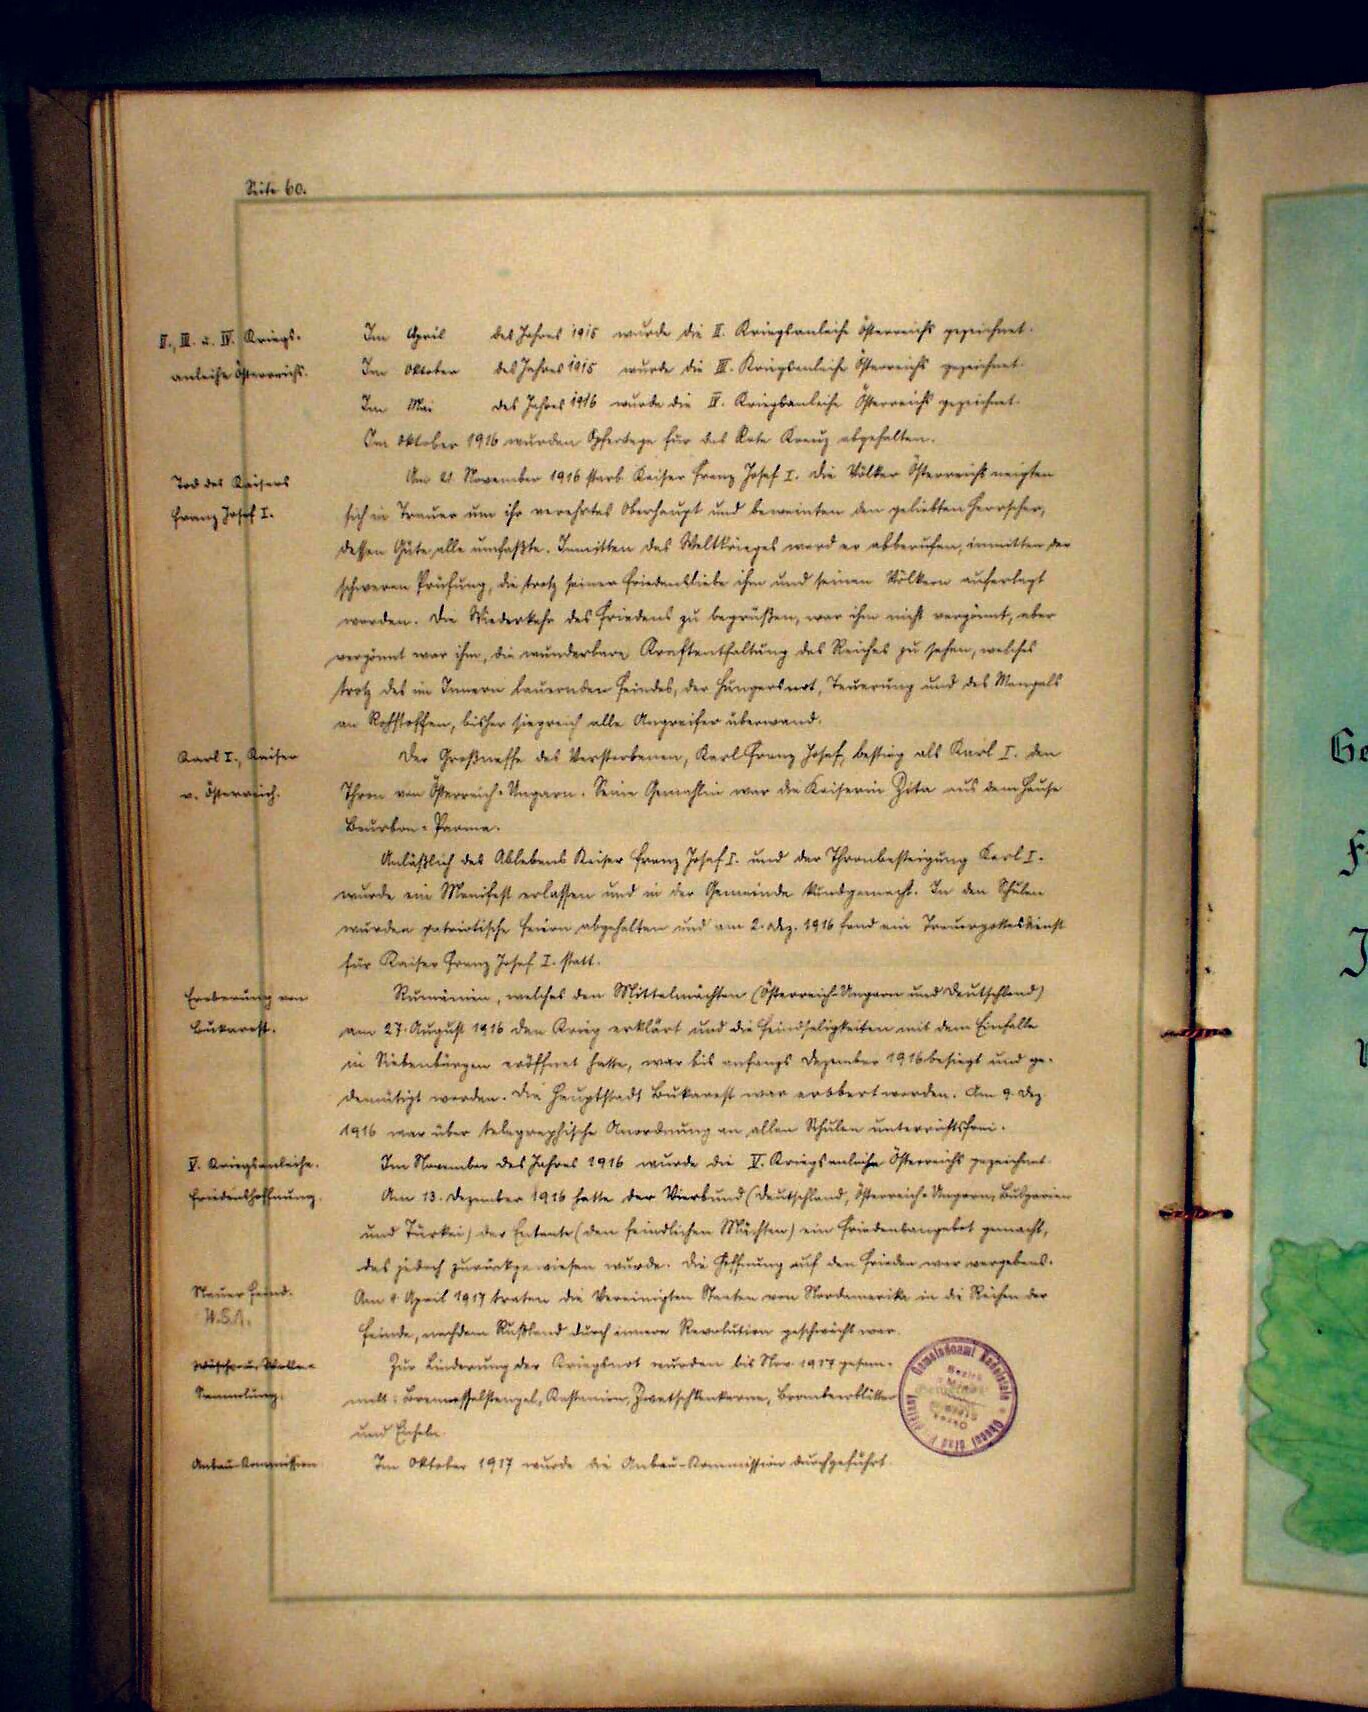 Seite 60.
II., III. u. IV. Kriegs-
anleihe Österreichs.
Im April des Jahres 1915 wurde die II. Kriegsanleihe Österreichs gezeichnet.
Im Oktober des Jahres 1915 wurde die III. Kriegsanleihe Österreichs gezeichnet.
Im Mai des Jahres 1916 wurde die IV. Kriegsanleihe Österreichs gezeichnet.
Im Oktober 1916 wurden Opfertage für das Rote Kreuz abgehalten.
Tod des Kaisers
Franz Josef I.
Am 21. November 1916 starb Kaiser Franz Josef I. Die Völker Österreichs neigten
sich in Trauer um ihr verehrtes Oberhaupt und beweinten den geliebten Herrscher,
dessen Güte alle umfaßte. Inmitten des Weltkrieges ward er abberufen, inmitten der
schweren Prüfung, die trotz seiner Friedensliebe ihm und seinen Völkern auferlegt
worden. Die Wiederkehr des Friedens zu begrüßen, war ihm nicht vergönnt, aber
vergönnt war ihm, die wunderbare Kraftentfaltung des Reiches zu sehen, welches
trotz des im Innern lauernden Feindes, der Hungersnot, Teuerung und des Mangels
an Rohstoffen, bisher siegreich alle Angreifer überwand.
Karl I., Kaiser
v. Österreich.
Der Großneffe des Verstorbenen, Karl Franz Josef, bestieg als Karl I. den
Thron von Österreich-Ungarn. Seine Gemahlin war die Kaiserin Zita aus dem Hause
Bourbon-Parma.
Anläßlich des Ablebens Kaiser Franz Josef I. und der Thronbesteigung Karl I.
wurde ein Manifest erlassen und in der Gemeinde kundgemacht. In den Schulen
wurden patriotische Feiern abgehalten und am 2. Dez. 1916 fand ein Trauergottesdienst
für Kaiser Franz Josef I. statt.
Eroberung von
Bukarest.
Rumänien, welches den Mittelmächten (Österreich-Ungarn und Deutschland)
am 27. August 1916 den Krieg erklärt und die Feindseligkeiten mit dem Einfalle
in Siebenbürgen eröffnet hatte, war bis anfangs Dezember 1916 besiegt und ge-
demütigt worden. Die Hauptstadt Bukarest war erobert worden. Am 9. Dez.
1916 war über telegraphische Anordnung an allen Schulen unterrichtsfrei.
V. Kriegsanleihe.
Im November des Jahres 1916 wurde die V. Kriegsanleihe Österreichs gezeichnet.
Friedenshoffnung.
Am 13. Dezember 1916 hatte der Vierbund (Deutschland, Österreich-Ungarn, Bulgarien
und Türkei) der Entente (den feindlichen Mächten) ein Friedensangebot gemacht,
das jedoch zurückgewiesen wurde. Die Hoffnung auf den Frieden war vergebens.
Neuer Feind.
U.S.A.
Am 4. April 1917 traten die Vereinigten Staaten von Nordamerika in die Reihen der
Feinde, nachdem Rußland durch innere Revolution geschwächt war.
Sammlung.
Zur Linderung der Kriegsnot wurden bis Nov. 1917 gesam-
melt: Brennesselstengel, Kastanien, Zwetschkenkerne, Brombeerblätter
und Eicheln.
Anbau-Kommission
Im Oktober 1917 wurde die Anbau-Kommission durchgeführt.
Gemeindeamt
Bezirk